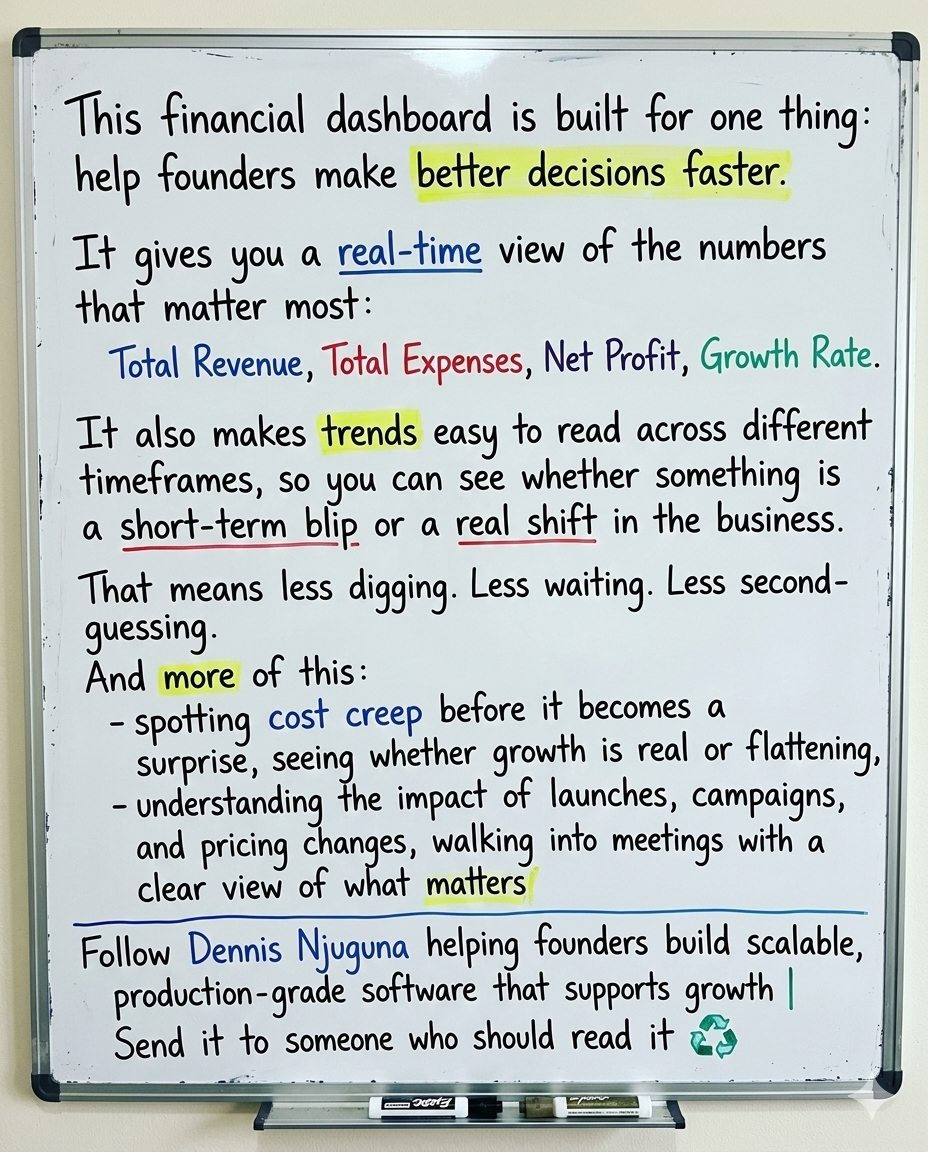 This financial dashboard is built for one thing:
help founders make better decisions faster.
It gives you a real-time view of the numbers
that matter most:
Total Revenue, Total Expenses, Net Profit, Growth Rate.
It also makes trends easy to read across different
timeframes, so you can see whether something is
a short-term blip or a real shift in the business.
That means less digging. Less waiting. Less second-
guessing.
And more of this:
- spotting cost creep before it becomes a
surprise, seeing whether growth is real or flattening,
- understanding the impact of launches, campaigns,
and pricing changes, walking into meetings with a
clear view of what matters
Follow Dennis Njuguna helping founders build scalable,
production-grade software that supports growth |
Send it to someone who should read it ♻